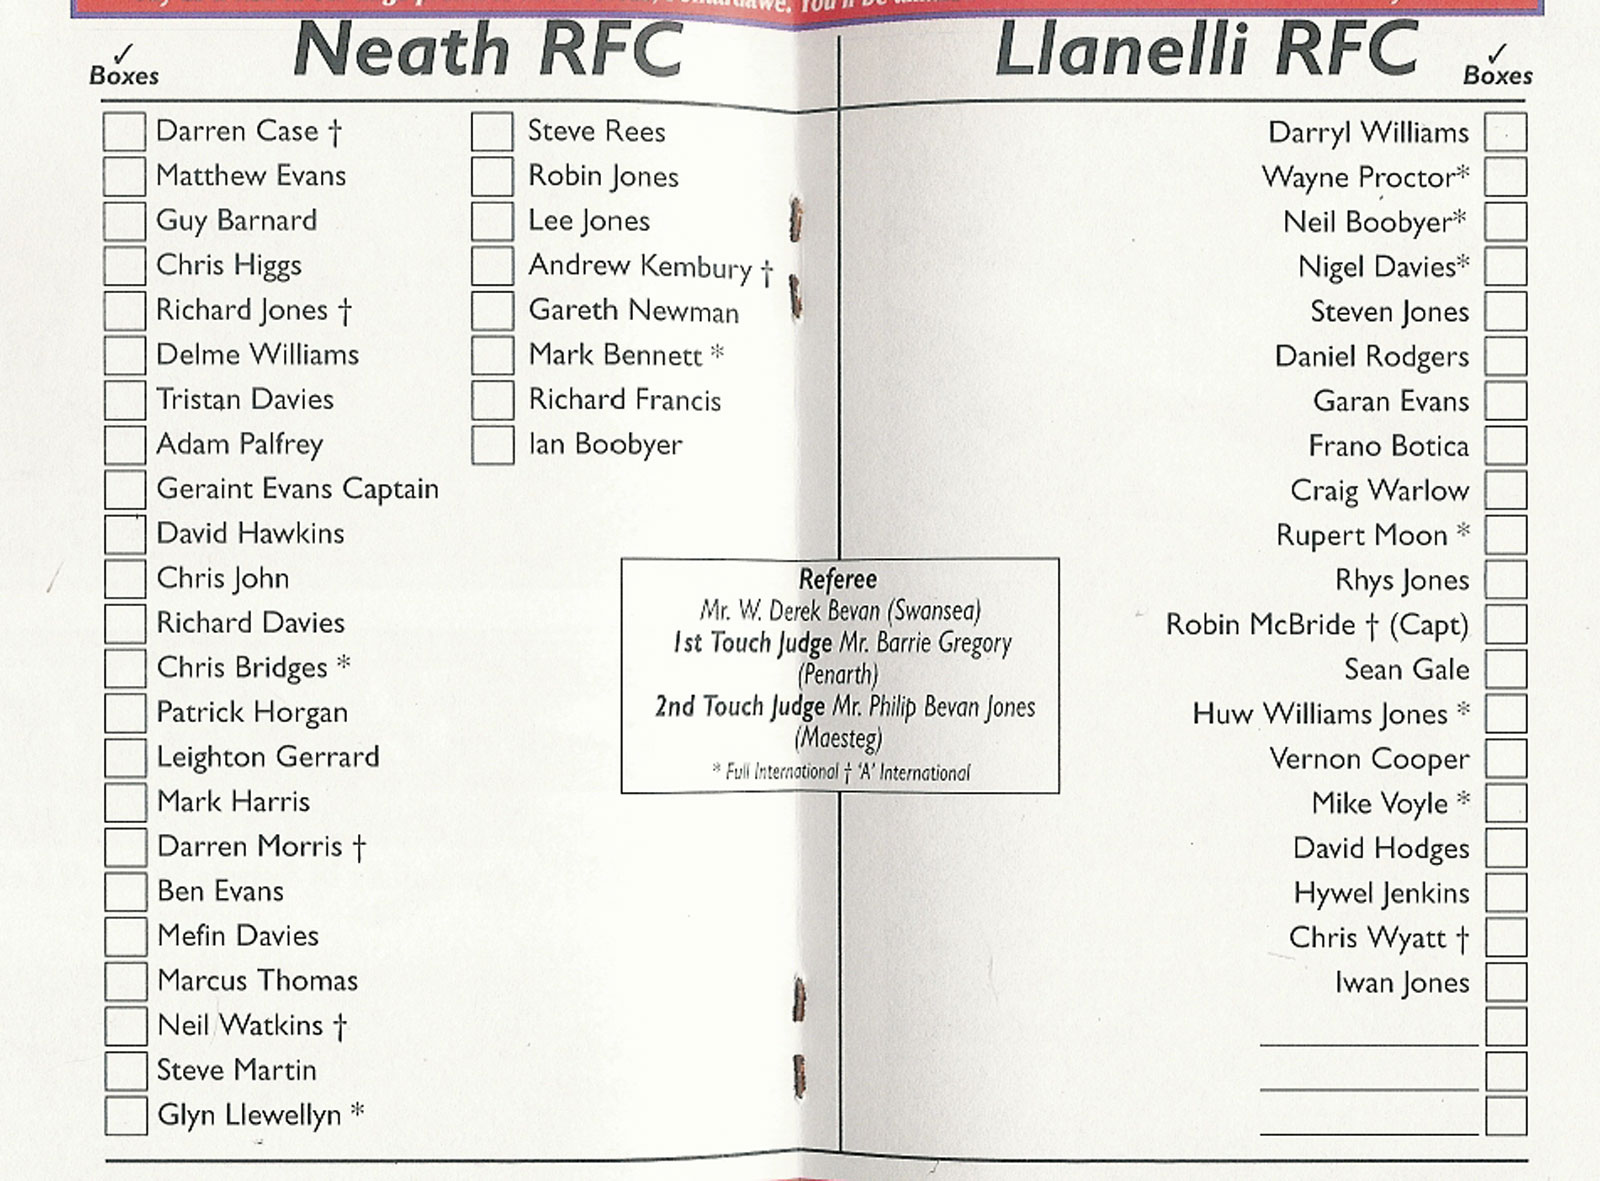 You'll be
Neath RFC
✓
Boxes
Darren Case †
Matthew Evans
Guy Barnard
Chris Higgs
Richard Jones †
Delme Williams
Tristan Davies
Adam Palfrey
Geraint Evans Captain
David Hawkins
Chris John
Richard Davies
Chris Bridges *
Patrick Horgan
Leighton Gerrard
Mark Harris
Darren Morris †
Ben Evans
Mefin Davies
Marcus Thomas
Neil Watkins †
Steve Martin
Glyn Llewellyn *
Steve Rees
Robin Jones
Lee Jones
Andrew Kembury †
Gareth Newman
Mark Bennett *
Richard Francis
Ian Boobyer
Referee
Mr. W. Derek Bevan (Swansea)
1st Touch Judge Mr. Barrie Gregory
(Penarth)
2nd Touch Judge Mr. Philip Bevan Jones
(Maesteg)
* Full International † 'A' International
Llanelli RFC
✓
Boxes
Darryl Williams
Wayne Proctor*
Neil Boobyer*
Nigel Davies*
Steven Jones
Daniel Rodgers
Garan Evans
Frano Botica
Craig Warlow
Rupert Moon *
Rhys Jones
Robin McBride † (Capt)
Sean Gale
Huw Williams Jones *
Vernon Cooper
Mike Voyle *
David Hodges
Hywel Jenkins
Chris Wyatt †
Iwan Jones